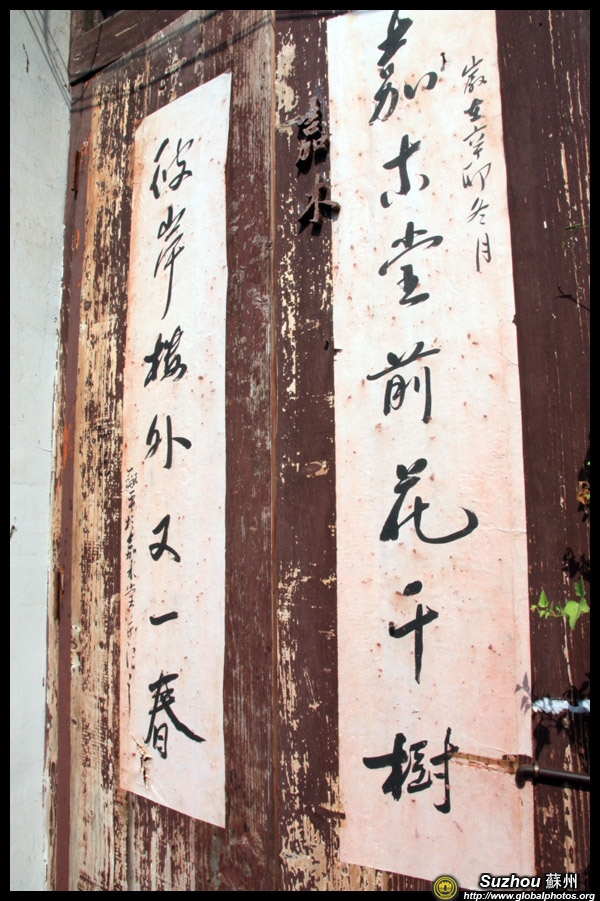 歲在辛卯冬月
嘉木堂前花千樹
嘉木
彼岸樓外又一春
Suzhou 蘇州
http://www.globalphotos.org